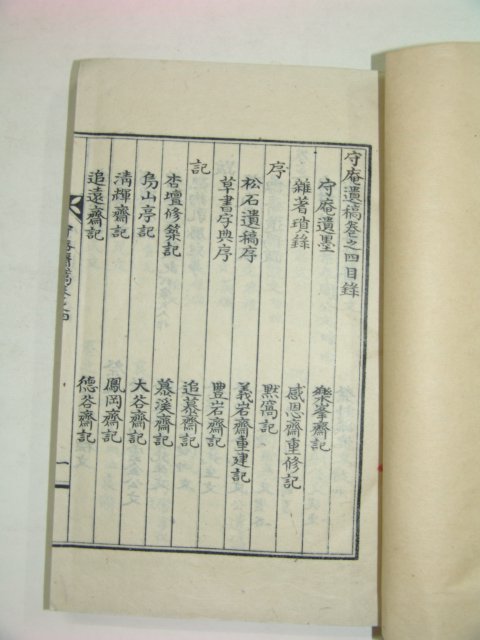 守庵遺稿卷之四目錄
守庵遺墨
雜著瑣錄 樂峯齋記
序 感恩齋重修記
松石遺稿序 默窩記
草書字典序 義岩齋重建記
記 豐岩齋記
杏壇修築記 追慕齋記
烏山亭記 慕溪齋記
淸輝齋記 大谷齋記
追遠齋記 鳳岡齋記
德谷齋記
一